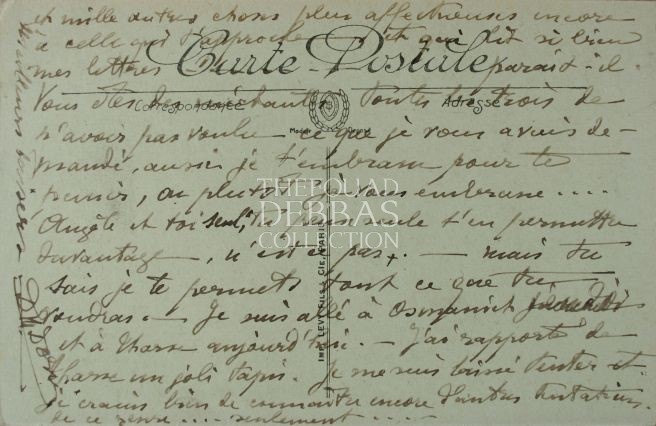 et mille autres choses plus affectueuses encore
à celle qui t'approche et qui lit si bien
mes lettres paraît-il.
Carte Postale
Correspondance
Adresse
Vous êtes des méchantes toutes les trois de
n'avoir pas voulu ce que je vous avais de-
mandé, aussi je t'embrasse pour te
punir, ou plutôt je vous embrasse ....
Angèle et toi seul, seule t'en permettre
davantage, n'est ce pas. — mais tu
sais je te permets tout ce que tu
voudras. — Je suis allé à Osmanich jeudi
et à Tharse aujourd'hui. — J'ai rapporté de
Tharse un joli tapis. Je me suis laissé tenter et
je crains bien de connaître encore d'autres tentations
de ce genre .... seulement .....
Meilleurs baisers
IMP. LEVY FILS & CIE, PARIS
THE POUAD
DEBBAS
COLLECTION